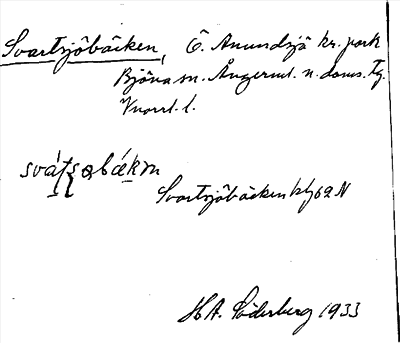 Svartsjöbäcken, Ö. Anundsjö kr. park
Björna sn. Ångerml. n. doms. tg.
Vnorrl. l.
svátsobákm
Svartsjöbäcken kbl 62 N
H.A. Söderberg 1933